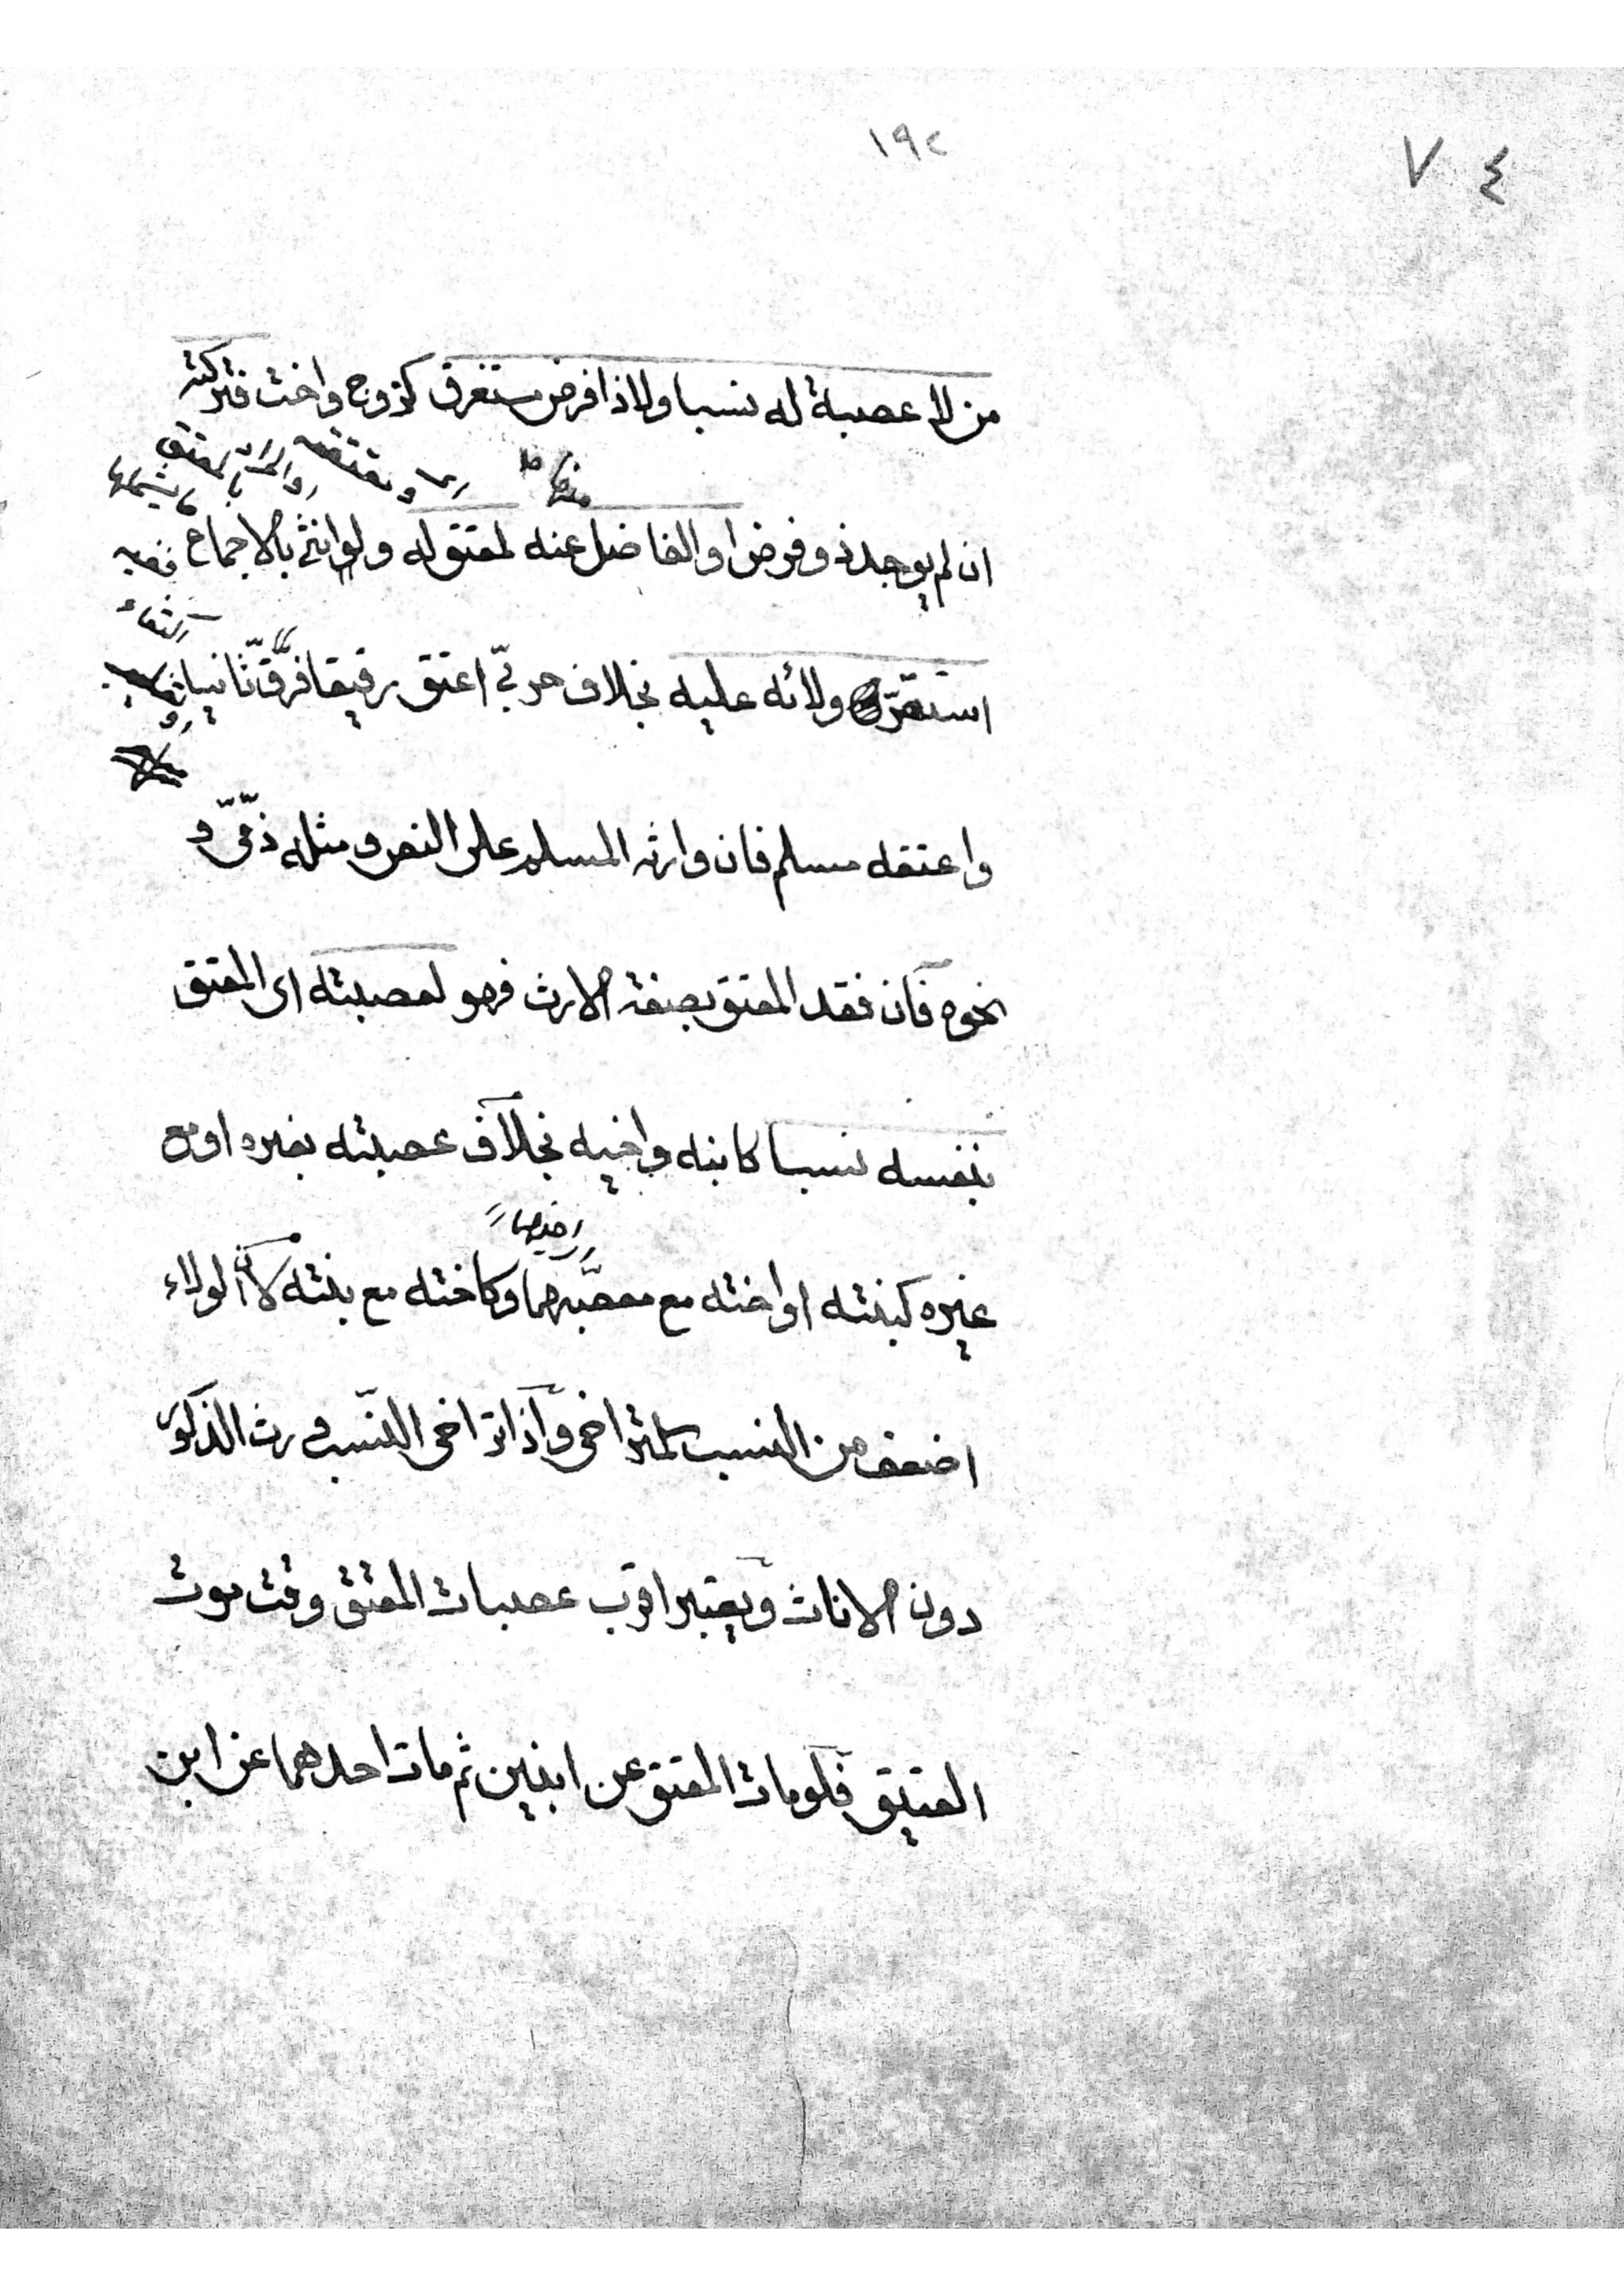 ١٩٢
٧٤
من لا عصبة له نسبا ولا ذا فرض مستغرق كزوج واخت فتركته
ان لم يوجد ذو فرض او الفاضل عنه لمعتق له ولو انثى بالاجماع
استقرّ ولائه عليه بخلاف حربيّ اعتق رقيقا فرقّ ثانيا
واعتقه مسلم فان وارثه المسلم على النص ومثله ذمّيّ و
نحوه فان فقد المعتق بصفة الارث فهو لعصبته اى المعتق
بنفسه نسبا كابنه واخيه بخلاف عصبته بغيره او مع
غيره كبنته او اخته مع معصّبهما وكاخته مع بنته لان الولاء
اضعف من النسب المتراخى واذا تراخى النّسب ورث الذكور
دون الاناث ويعتبر اقرب عصبات المعتق وقت موت
العتيق فلو مات المعتق عن ابنين ثم مات احدهما عن ابن